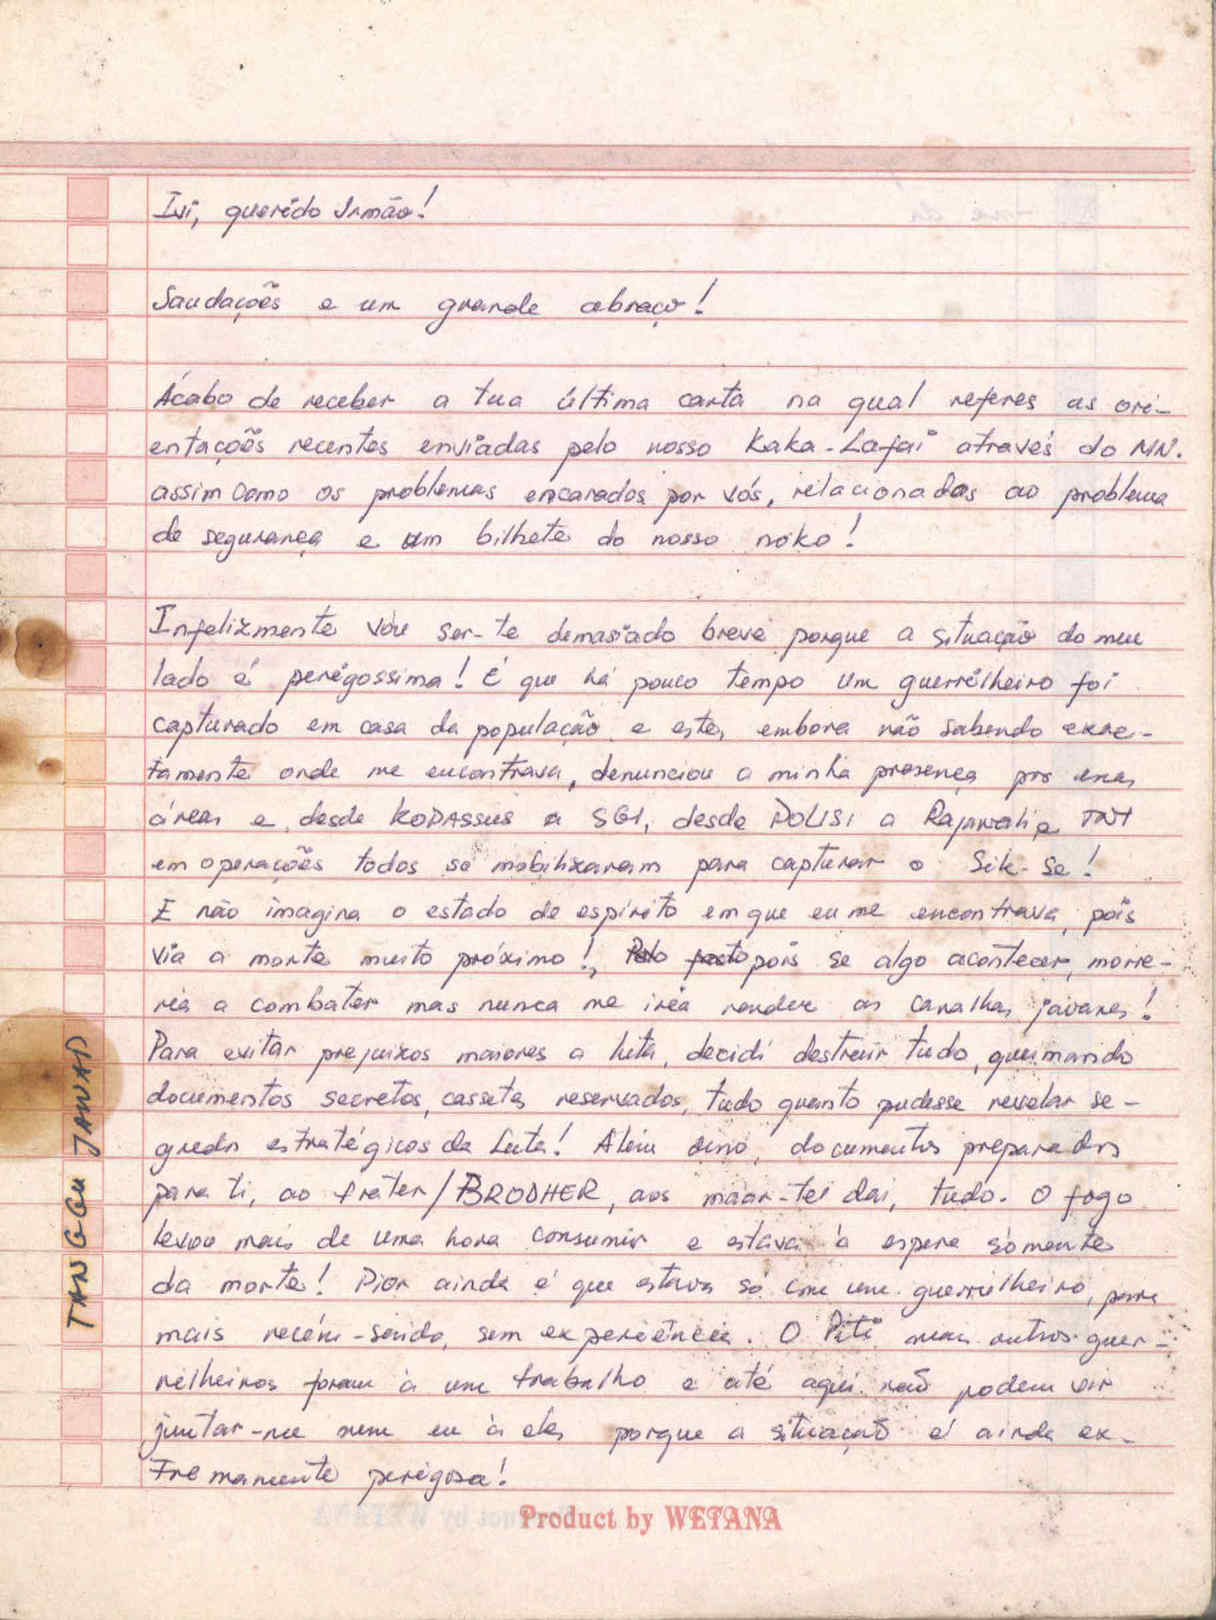 Isi, querído Irmão!
Saudações e um grande abraço!
Acabo de receber a tua última carta na qual referes as ori-
entações recentes enviadas pelo nosso Kaka-Lafai através do NN.
assim como os problemas encarados por vós, relacionados ao problema
de segurança e um bilhete do nosso noko!
Infelizmente vou ser-te demasiado breve porque a situação do meu
lado é perigossima! É que há pouco tempo um guerrilheiro foi
capturado em casa da população e este, embora não sabendo exac-
tamente onde me encontrava, denunciou a minha presença
áreas e, desde KOPASSUS a SGI, desde POLISI a Rajawali e TNI
em operações todos se mobilizaram para capturar o Sik-Se!
E não imagina o estado de espírito em que eu me encontrava, pois
via a morte muito próximo!, Pelo facto pois se algo acontecer, morre-
ria a combater mas nunca me iria render os canalhas javanes!
Para evitar prejuizos maiores a luta, decidi destruir tudo, queimando
documentos secretos, cassetes reservados, tudo quanto pudesse revelar se-
gredos estratégicos da Luta! Além disso, documentos preparados
para ti, ao frater/BRODHER, aos maar-tei dai, tudo. O fogo
levou mais de uma hora consumir e estava à espera sòmente
da morte! Pior ainda é que estava só com um guerrilheiro, para
mais recém-saido, sem experiência. O Piti mais outros guer-
rilheiros foram à um trabalho e até aqui não podem vir
juntar-me nem eu à eles porque a situação é ainda ex-
tremamente perigosa!
TANGGU JAWAB
Product by WETANA